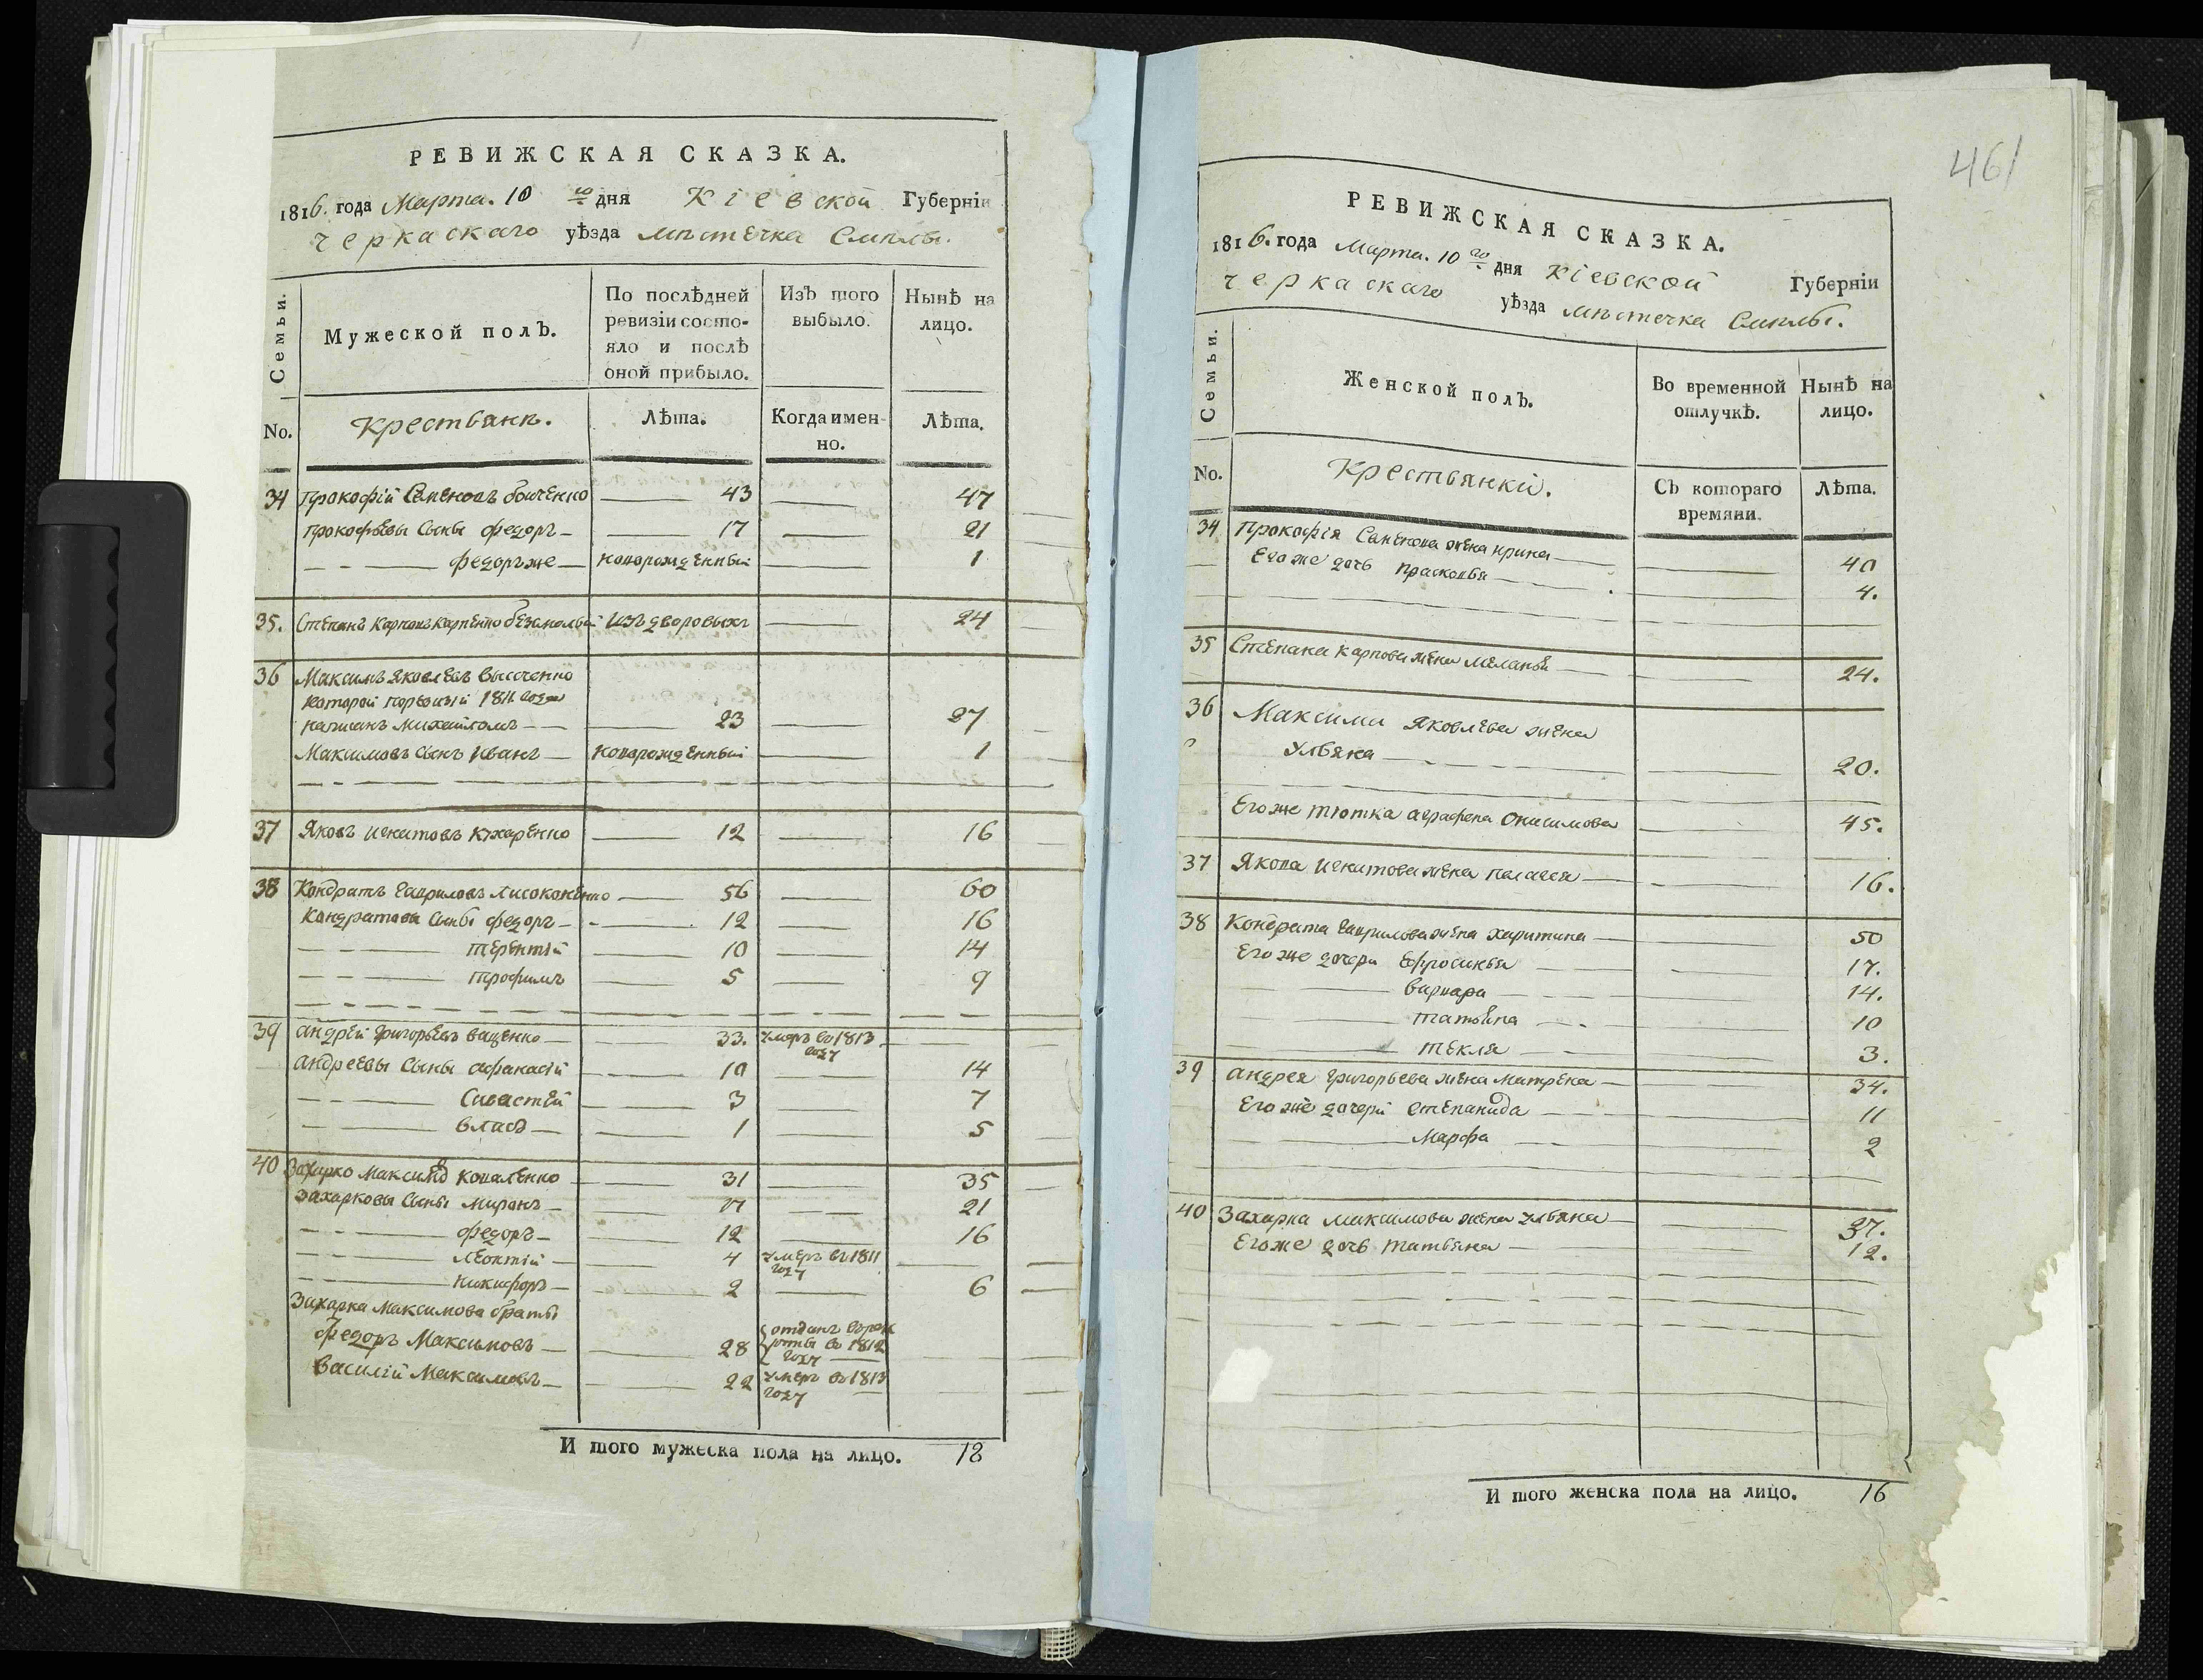 РЕВИЖСКАЯ СКАЗКА.
1816. года Марта. 10 го дня Кіевской Губерніи
Черкаскаго уѣзда мѣстечка Смѣлы.
Семьи.
Мужеской полъ.
По послѣдней ревизіи состо-
яло и послѣ оной прибыло.
Изъ того выбыло.
Нынѣ на лицо.
No.
Крестьянъ.
Лѣта.
Когда имен-
но.
Лѣта.
34 Прокофій Семеновъ 43 47
Прокофьевы Сыны федоръ 17 21
федоръ же новорожденный 1
35. Степанъ Карповъ Карпенко изъ дворовыхъ 24
36 Максимъ Яковлевъ Высоченко
которой по ревизіи 1811 года
написанъ Михайломъ 23 27
Максимовъ Сынъ Иванъ новорожденный 1
37 Яковъ Игнатовъ Кухаренко 12 16
38 Кондратъ Гавриловъ Лисоконенко 56 60
Кондратовы Сыны федоръ 12 16
Терентій 10 14
Трофимъ 5 9
39 Андрѣй Григорьевъ Ващенко 33. умеръ въ 1813
году
Андреевы Сыны Афанасій 10 14
Сивастей 3 7
Власъ 1 5
40 Захарко Максимов Коваленко 31 35
Захарковы Сыны Миронъ 17 21
федоръ 12 16
Леонтій 4 умеръ въ 1811
году
Никифоръ 2 6
Захарка Максимова браты
федоръ Максимовъ 28 отданъ въ рек
руты въ 1812
году
Василій Максимовъ 22 умеръ въ 1813
году
И того мужеска пола на лицо. 18
461
РЕВИЖСКАЯ СКАЗКА.
1816. года Марта. 10 го дня Кіевской Губерніи
Черкаскаго уѣзда мѣстечка Смѣлы.
Семьи.
Женской полъ.
Во временной отлучкѣ.
Нынѣ на лицо.
No.
Крестьянки.
Съ котораго времяни.
Лѣта.
34 Прокофія Семенова жена Ирина 40
Его же дочь Прасковья 4.
35 Степана Карпова жена Меланья 24.
36 Максима Яковлева жена
Ульяна 20.
Его же тютка Аграфена Онисимова 45.
37 Якова Игнатова жена Пелагея 16.
38 Кондрата Гаврилова жена Харитина 50
Его же дочери Ефросинья 17.
Варвара 14.
Татьяна 10
Текля 3.
39 Андрея Григорьева жена Матрена 34.
Его же дочери Степанида 11
Марфа 2
40 Захарка Максимова жена Ульяна 37.
Его же дочь Татьяна 12.
И того женска пола на лицо. 16